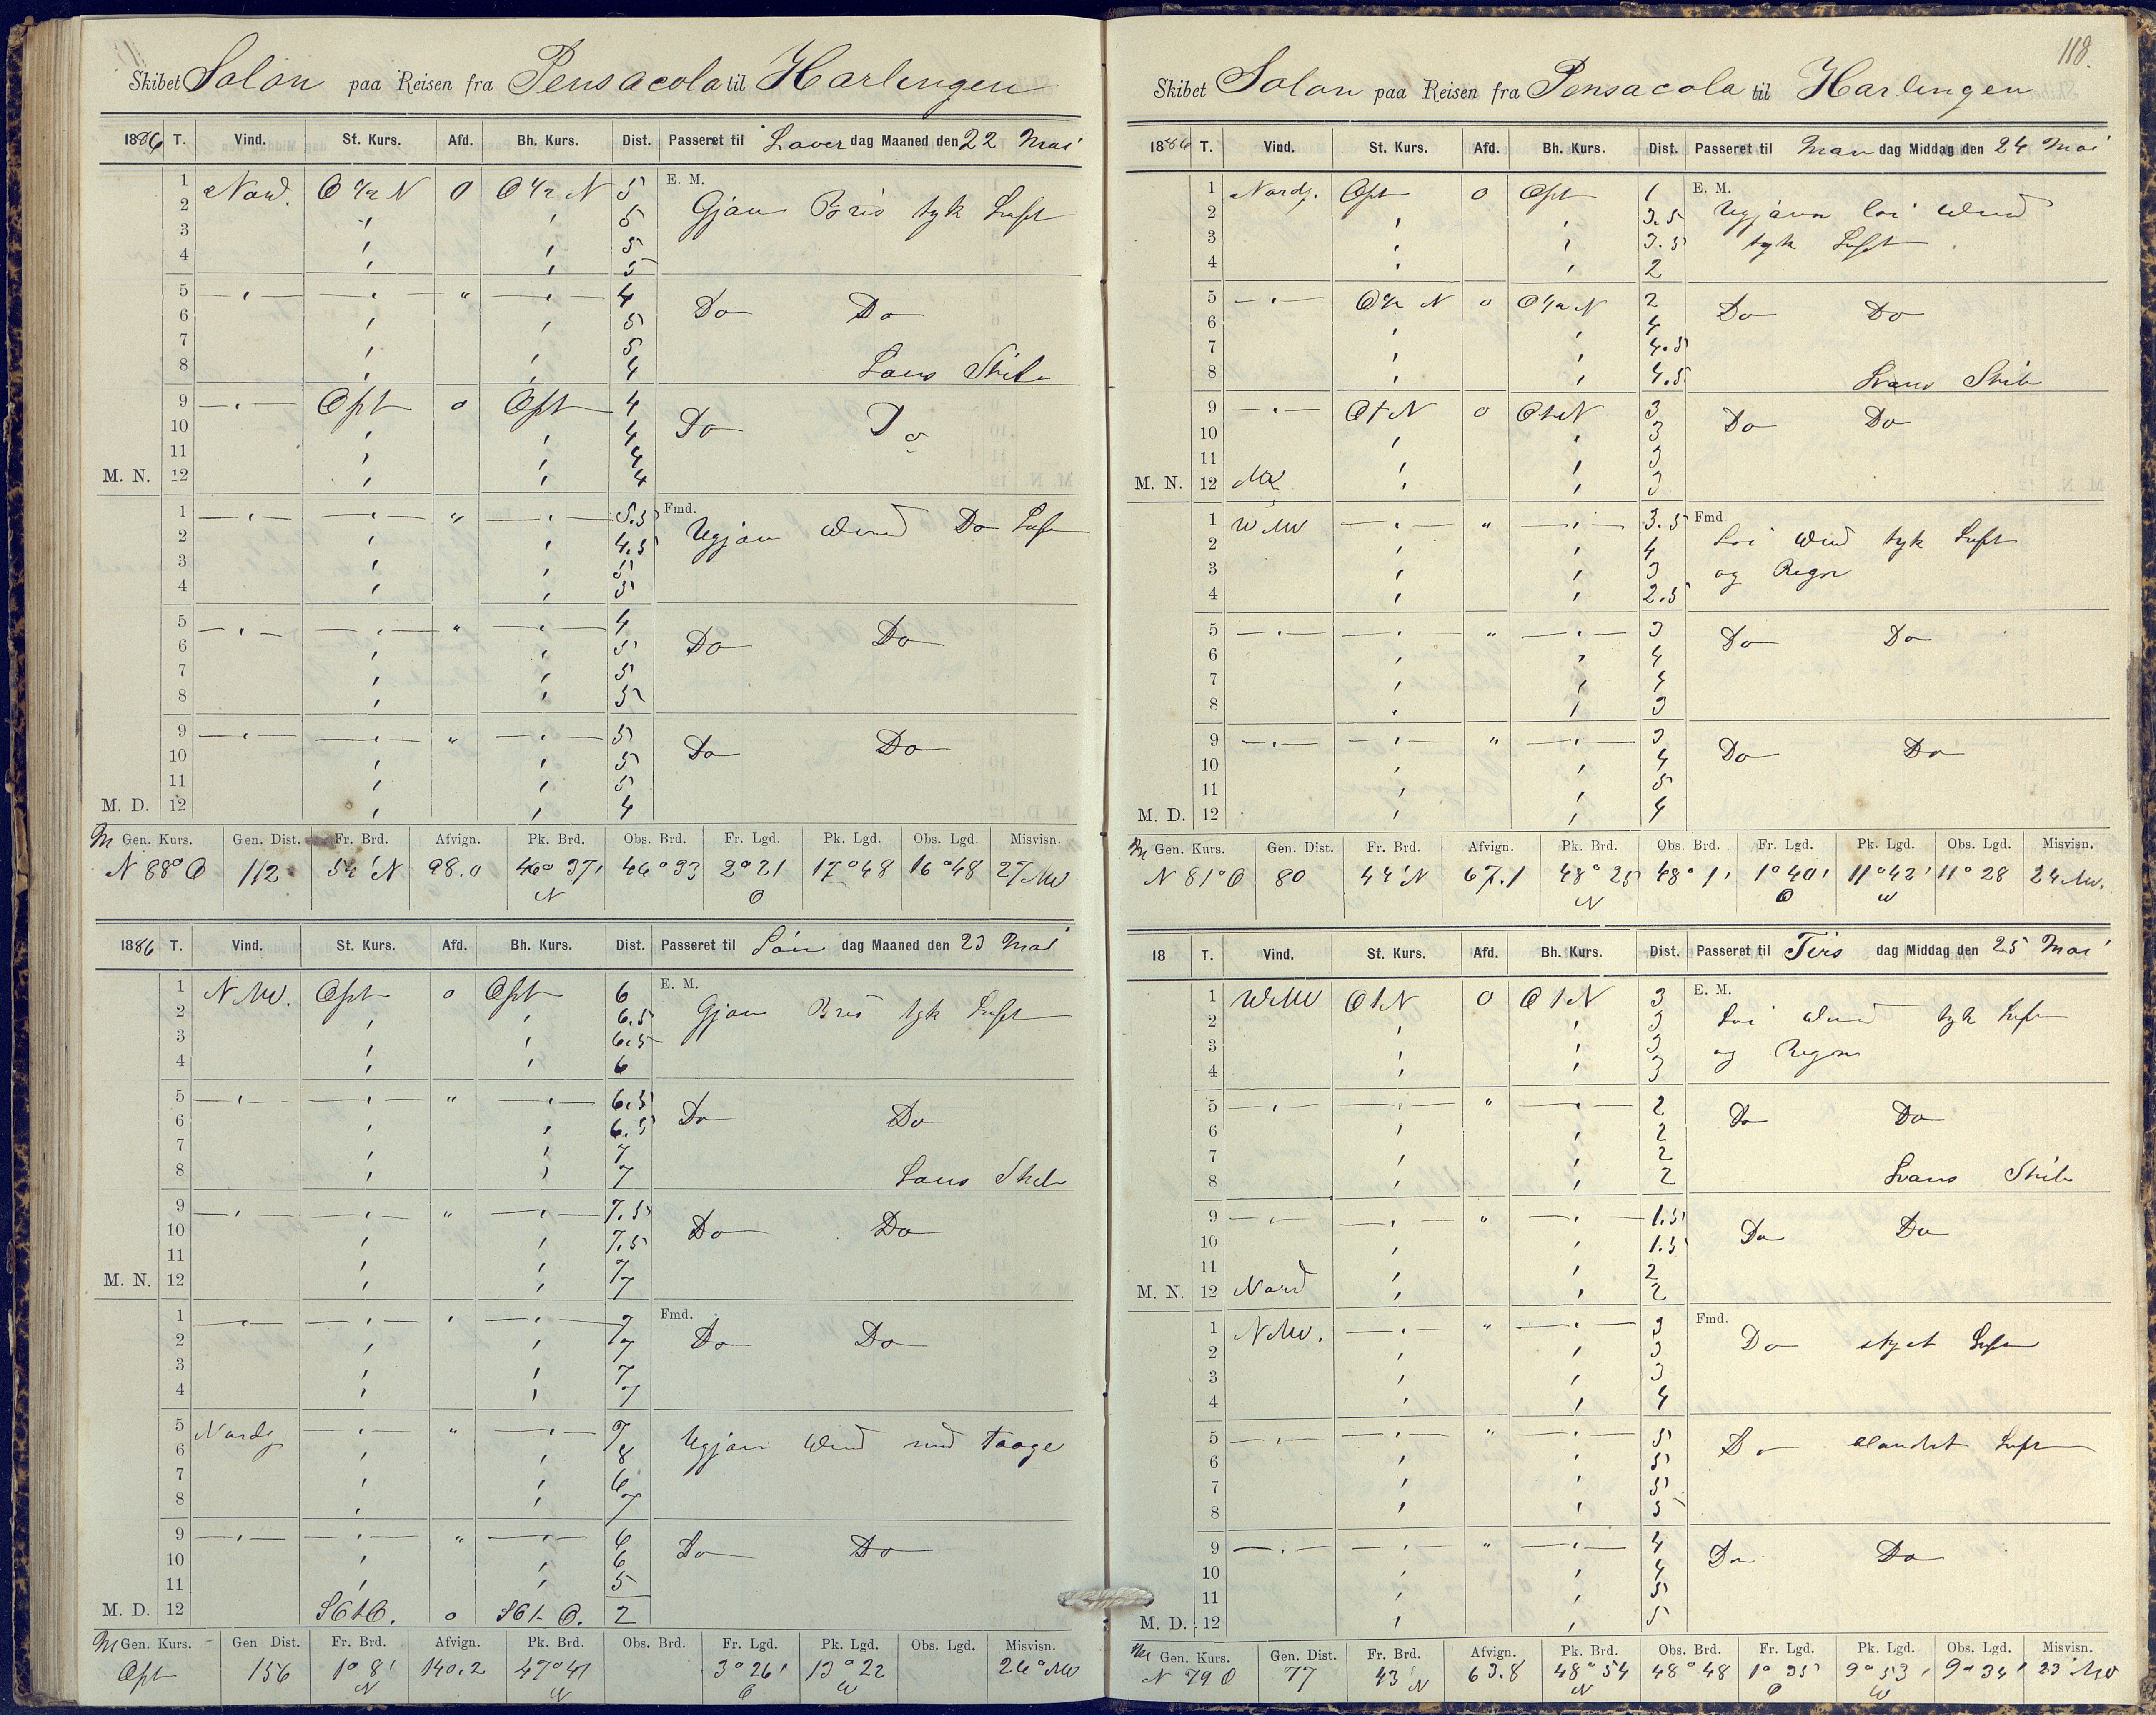 Skibet Solon paa Reisen fra Pensacola til Harlingen
1886 T. Vind. St. Kurs. Afd. Bh. Kurs. Dist. Passeret til Löver dag Maaned den 22 Mai
1 Nord. O ½ N 0 O ½ N 5 E. M.
2 5 Gjævn Bris tyk Luft
3 5
4 5
5 4 Do Do
6 5
7 5
8 4 Lans Skib
9 Ost 0 Ost 4
10 4 Do Do
11 4
M. N. 12 4
1 5.5 Fmd.
2 4.5 Ugjævn Wind Do Luft
3 5
4 5
5 4
6 5 Do Do
7 5
8 5
9 5
10 5 Do Do
11 5
M. D. 12 4
M Gen. Kurs. Gen. Dist. Fr. Brd. Afvign. Pk. Brd. Obs. Brd. Fr. Lgd. Pk. Lgd. Obs. Lgd. Misvisn.
N 88° O 112 54' N 98.0 46° 37' N 46° 33 2° 21 O 17° 48 16° 48 27 NW
1886 T. Vind. St. Kurs. Afd. Bh. Kurs. Dist. Passeret til Sön dag Maaned den 23 Mai
1 N NW. Ost 0 Ost 6 E. M.
2 6.5 Gjævn Bris tyk Luft
3 6.5
4 6
5 6.5
6 6.5 Do Do
7 7
8 7 Lans Skib
9 7.5
10 7.5 Do Do
11 7
M. N. 12 7
1 7 Fmd.
2 7 Do Do
3 7
4 7
5 Nordlg 7
6 8 Ugjævn Wind med Taage
7 6
8 7
9 6
10 6 Do Do
11 5
M. D. 12 SO t O. 0 SO t O. 2
M Gen. Kurs. Gen Dist. Fr. Brd. Afvign. Pk. Brd. Obs. Brd. Fr. Lgd. Pk. Lgd. Obs. Lgd. Misvisn.
Ost 156 1° 8' N 140.2 47° 41 N 3° 26' O 13° 22 W 26° NW
118.
Skibet Solon paa Reisen fra Pensacola til Harlingen
1886 T. Vind. St. Kurs. Afd. Bh. Kurs. Dist. Passeret til Man dag Middag den 24 Mai
1 Nordlg. Ost 0 Ost 1 E. M.
2 3.5 Ugjævn löi Wind
3 3.5 tyk Luft
4 2
5 O ½ N 0 O ½ N 2
6 4 Do Do
7 4.5
8 4.5 Lans Skib
9 O t N 0 O t N 3
10 3 Do Do
11 3
M. N. 12 NW 3
1 W NW 3.5 Fmd
2 4 Löi Wind tyk Luft
3 3 og Regn
4 2.5
5 3 Do Do
6 4
7 4
8 3
9 3
10 4 Do Do
11 5
M. D. 12 4
M Gen. Kurs. Gen. Dist. Fr. Brd. Afvign. Pk. Brd. Obs. Brd. Fr. Lgd. Pk. Lgd. Obs. Lgd. Misvisn.
N 81° O 80 44' N 67.1 48° 25 N 48° 1' 1° 40' O 11° 42' W 11° 28 24 NW.
18 T. Vind. St. Kurs. Afd. Bh. Kurs. Dist. Passeret til Tirs dag Middag den 25 Mai
1 W NW O t N 0 O t N 3 E. M.
2 3 Löi Wind tyk Luft
3 3 og Regn
4 3
5 2
6 2 Do Do
7 2
8 2 Lans Skib
9 1.5
10 1.5 Do Do
11 2
M. N. 12 Nord 2
1 N NW. 3 Fmd.
2 3 Do skyet Luft
3 3
4 4
5 5
6 5 Do blandet Luft
7 5
8 5
9 4
10 4 Do Do
11 5
M. D. 12 5
M Gen. Kurs. Gen. Dist. Fr. Brd. Afvign. Pk. Brd. Obs. Brd. Fr. Lgd. Pk. Lgd. Obs. Lgd. Misvisn.
N 79 O 77 43' N 63.8 48° 54 N 48° 48 1° 35' O 9° 53' W 9° 34' 23° NW